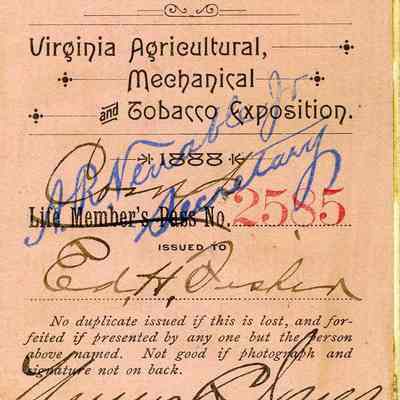 Virginia Agricultural,
Mechanical
and Tobacco Exposition.
A. R. Venable Jr
1888
Secretary
Life Member's Pass No. 2585
ISSUED TO
Ed. H.
No duplicate issued if this is lost, and for-
feited if presented by any one but the person
above named. Not good if photograph and
signature not on back.